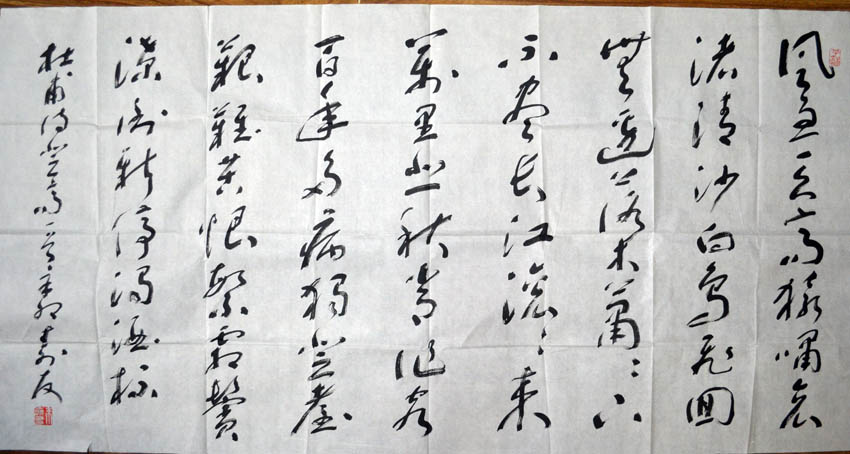 風急天高猿嘯哀
渚清沙白鳥飛迴
無邊落木蕭〻下
不盡長江滾〻來
萬里悲秋常作客
百年多病獨登臺
艱難苦恨繁霜鬢
潦倒新停濁酒杯
杜甫詩登高一首辛卯壽友